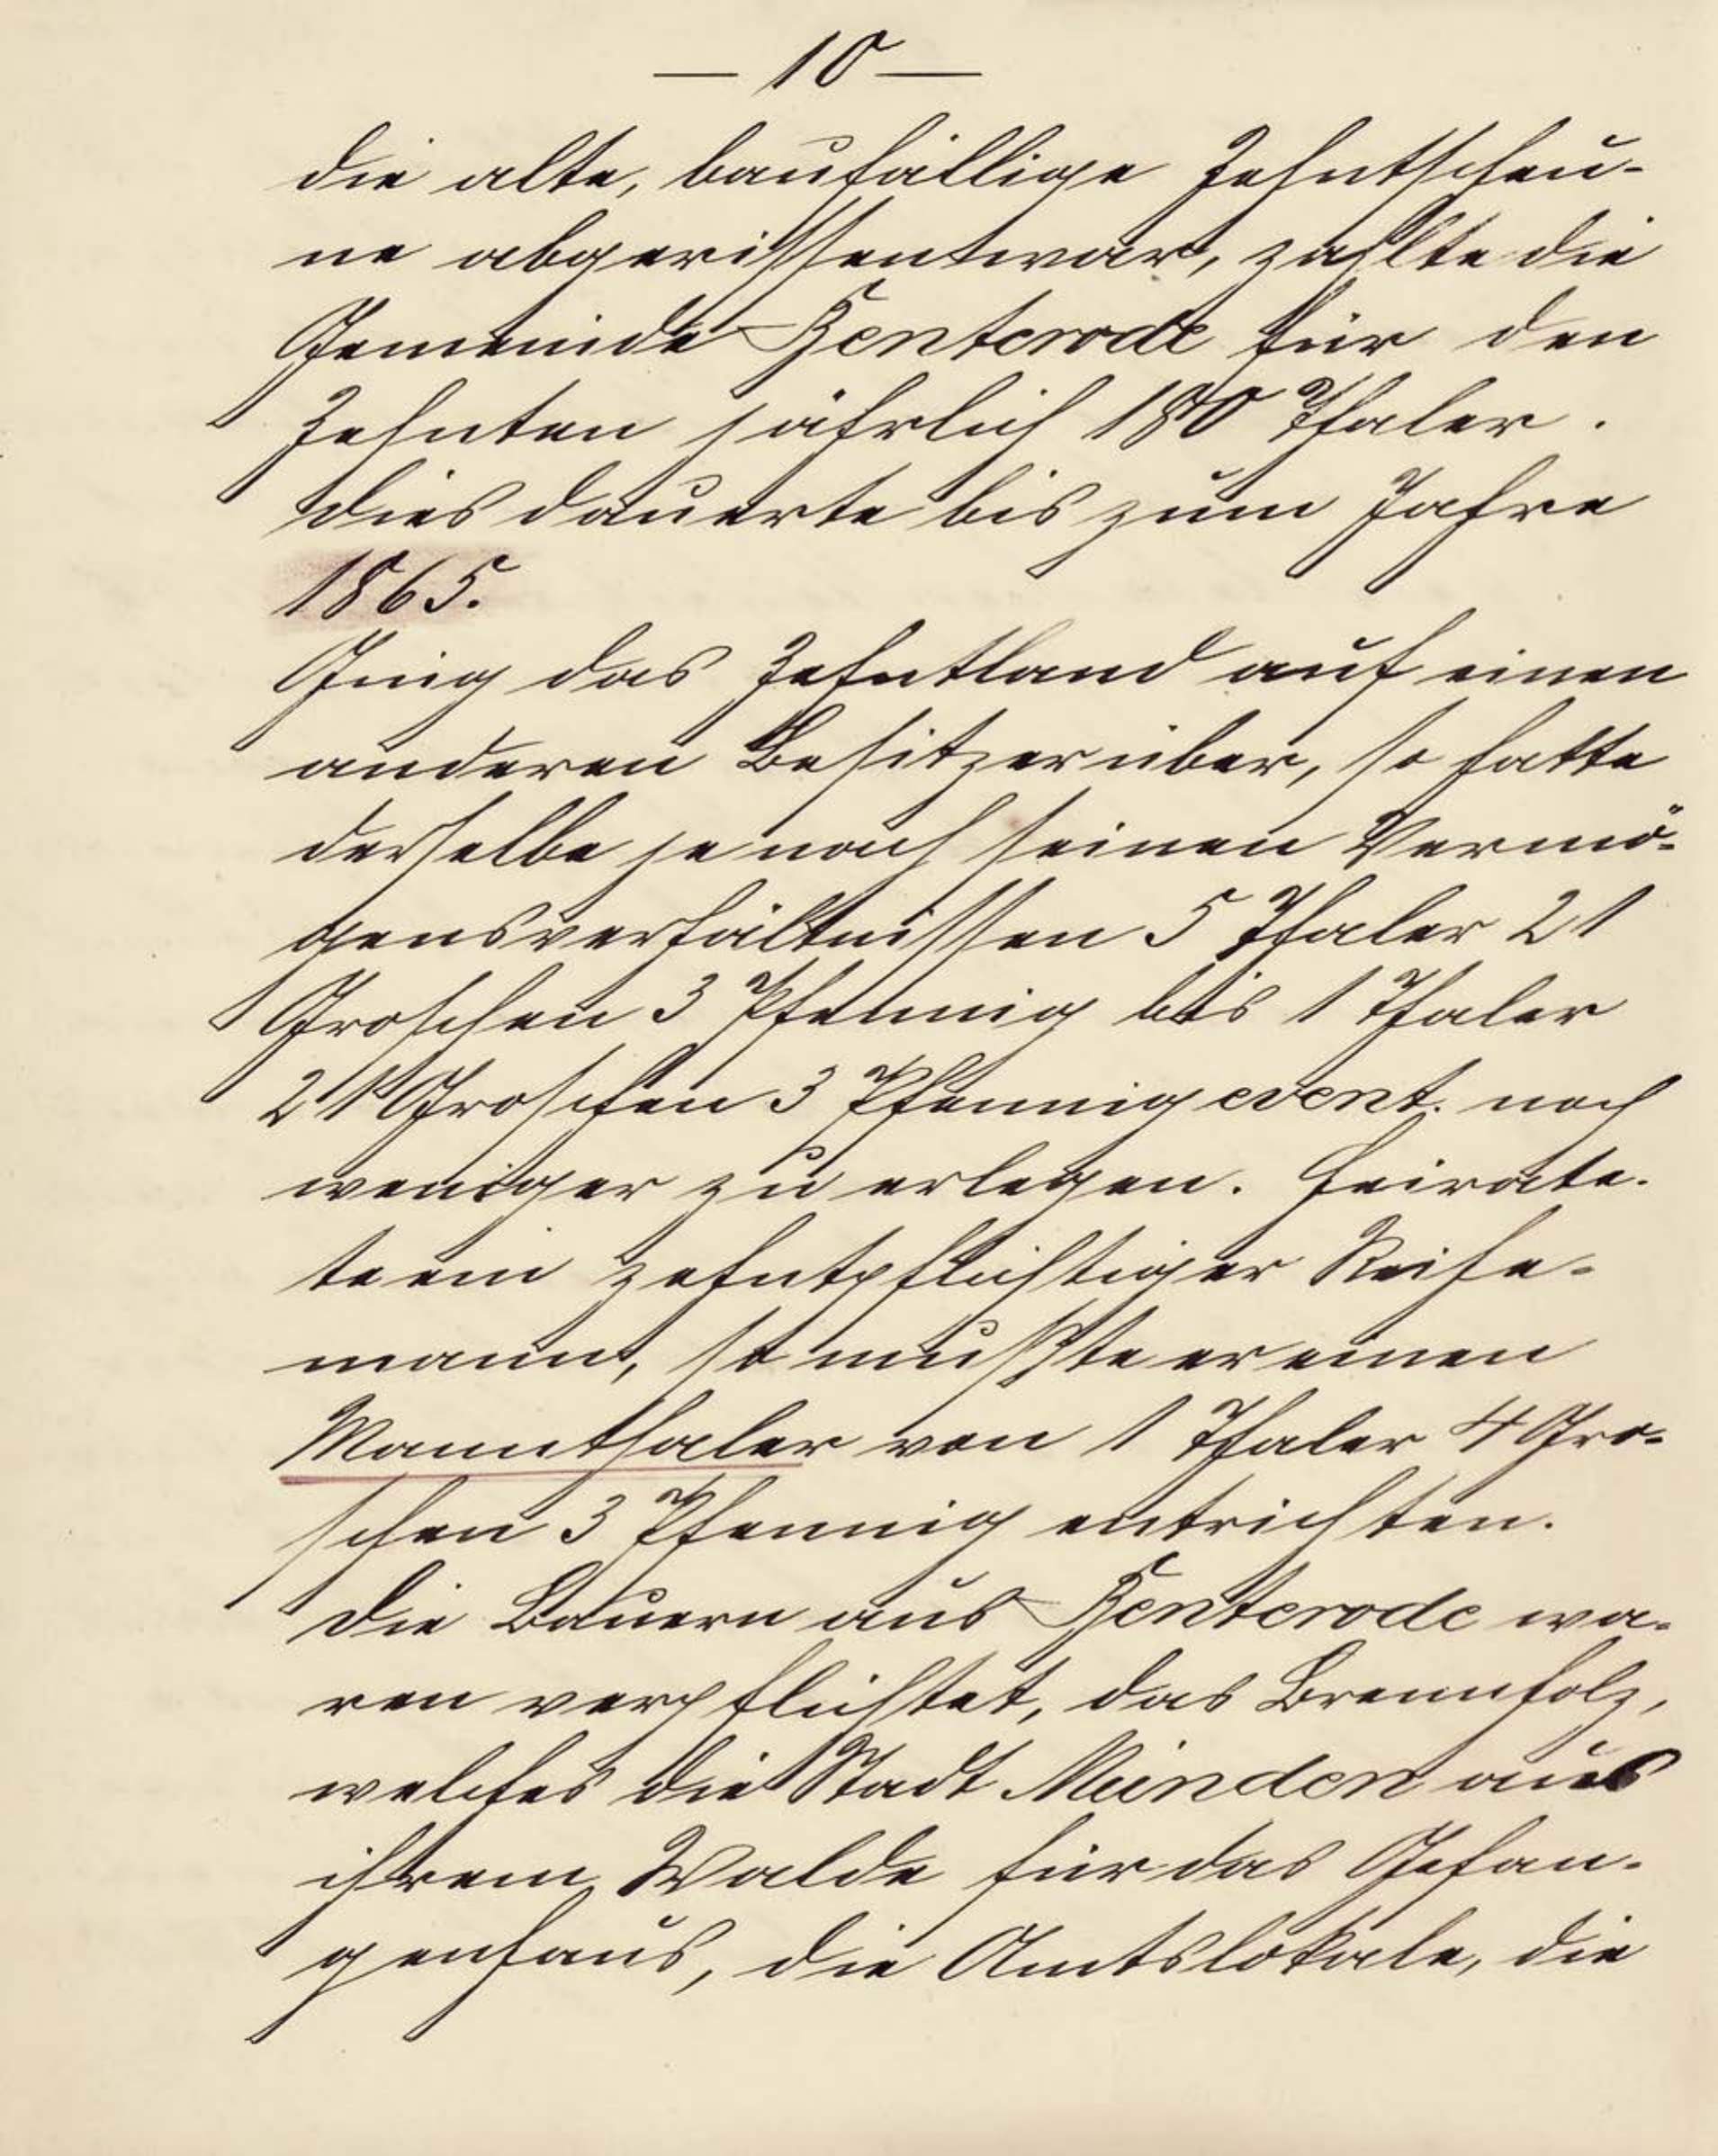 — 10 —
die alte, baufällige Zehntscheu-
ne abgerissen war, zahlte die
Gemeinde Benterode für den
Zehnten jährlich 180 Thaler.
Dies dauerte bis zum Jahre
1865.
Ging das Zehntland auf einen
anderen Besitzer über, so hatte
derselbe je nach seinen Vermö-
gensverhältnissen 5 Thaler 21
Groschen 3 Pfennig bis 1 Thaler
21 Groschen 3 Pfennig event. noch
weniger zu erlegen. Heirate-
te ein zehntpflichtiger Reihe-
mann, so mußte er einen
Mannthaler von 1 Thaler 4 Gro-
schen 3 Pfennig entrichten.
Die Bauern aus Benterode wa-
ren verpflichtet, das Brennholz,
welches die Stadt Münden aus
ihrem Walde für das Gefan-
genhaus, die Amtslokale, die